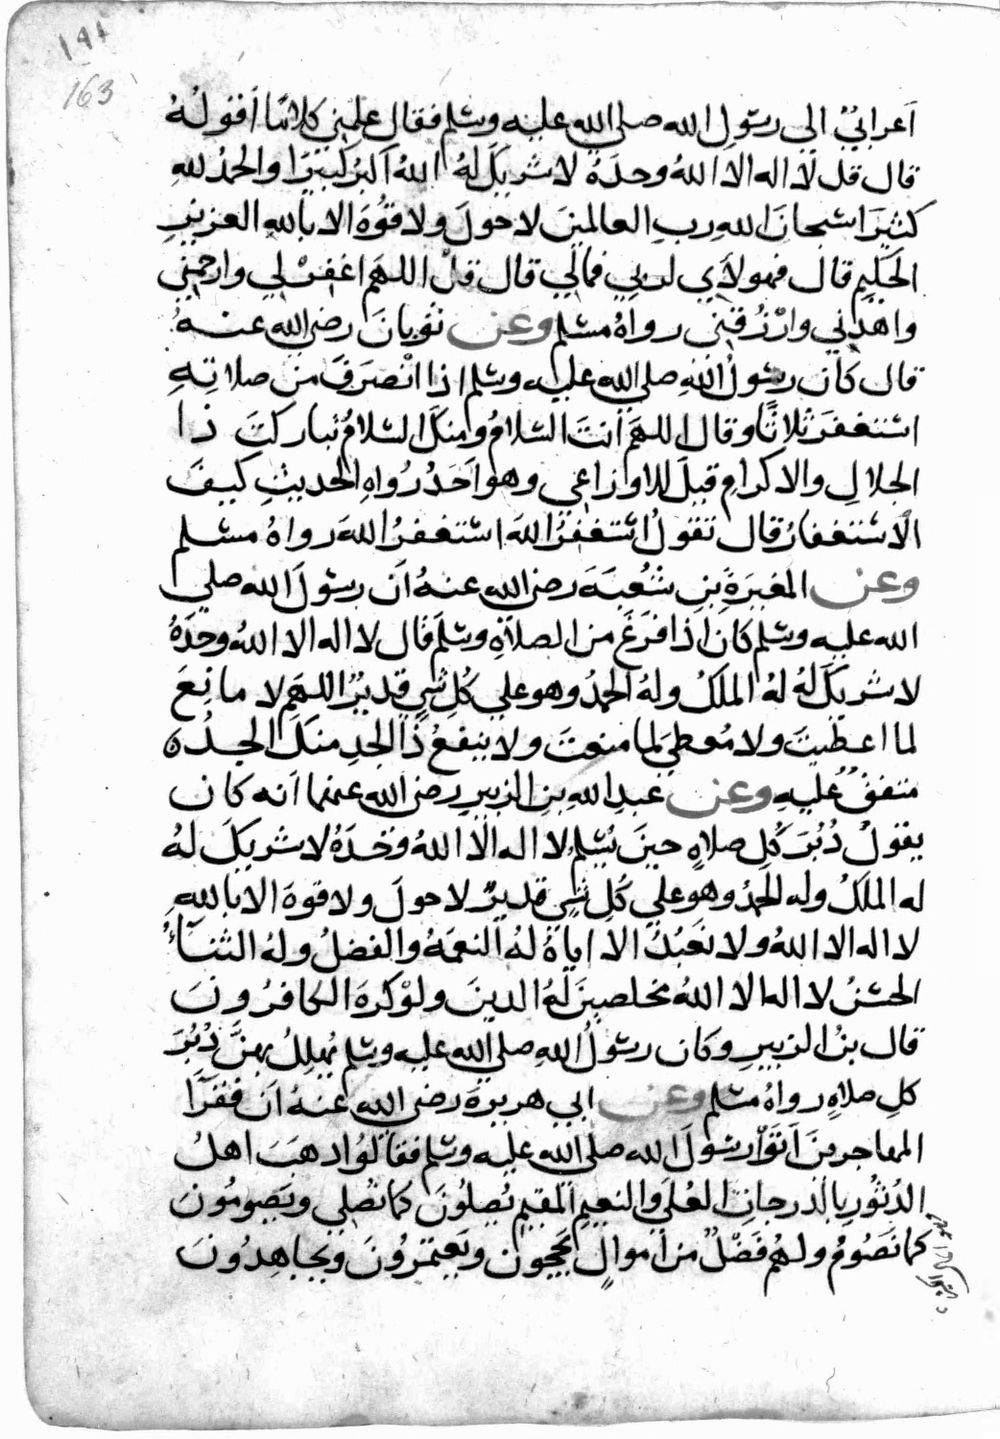 ١٩٨
163
اَعرابيٌ الى رسَوُلِ الله صلى الله عليه وسَلم فقال علمني كلامًا اَقولُهُ
قال قل لا اله الا اللهُ وحدَهُ لا شريكَ لهُ اللهُ اكبرُ كبيرًا والحمدُ للهِ
كثيرًا سُبحانَ اللهِ ربِ العالمينَ لا حولَ ولا قوُةَ الا باللهِ العزيزِ
الحَكيمِ قال فهولاءِ لربي فمالي قال قلْ اللهَم اغفرْ لي وارحمني
واهدني وارْزُقني رواهُ مسَلم وعن ثوبانَ رضي الله عنهُ
قال كانَ رسَولُ اللهِ صلى الله عليه وسَلم اذا انْصَرَفَ من صلاتِهِ
استَغفرَ ثلاثًا وقال اللهمَ انتَ السَلامُ ومنكَ السَلامُ تباركتَ ذا
الجلالِ والاكرامِ قيلَ للاوزاعي وهو اَحَدُ رُواهِ الحديثِ كيفَ
الاسْتغفارُ قال تقولُ اسْتغفرُ اللهَ استغفرُ اللهَ رواهُ مسَلم
وعن المغيرَةِ بنِ شُعبَةَ رضي الله عنهُ اَن رسَولَ الله صلى
الله عليه وسَلم كان اذا فرَغَ من الصلاةِ وسَلَم قال لا اله الا اللهُ وحدَهُ
لا شريكَ لهُ لهُ الملكُ ولهُ الحمدُ وهو على كُلِ شيٍ قديرُ اللهم لا مانعَ
لما اعطيتَ ولا مُعطيَ لما منعتَ ولا ينفعُ ذا الجَدِ منكَ الجدُ
متفقٌ عليهِ وعن عبدِ اللهِ بنِ الزبيرِ رضي الله عنهما اَنه كان
يقولُ دُبُرَ كُلِ صلاهٍ حينَ يُسَلم لا اله الا اللهُ وحدَهُ لا شريكَ لهُ
له الملكُ وله الحمدُ وهو على كُلِ شيٍ قديرٌ لا حولَ ولا قوةَ الا باللهِ
لا اله الا اللهُ ولا نعَبُدُ الا اياهُ لهُ النعمَهُ والفضلُ ولهُ الثناَءُ
الحسَنُ لا اله الا اللهُ مخلصينَ لهُ الدينَ ولوْ كرهَ الكافرُونَ
قال بنُ الزبيرِ وكان رسَولُ اللهِ صلى الله عليه وسَلم يُهللُ بهنَّ دُبُرَ
كلِ صلاهٍ رواهُ مسَلم وعن ابي هريرةَ رضي الله عنهُ اَن فقرَآَ
المهاجرينَ اَتَوْا رسَولَ الله صلى الله عليه وسَلم فقالُوا ذهَبَ اهلُ
الدُثُورِ بالدرجاتِ العُلىَ والنعيمِ المقيمِ يُصلُونَ كما نصُلي ويَصومُونَ
كما نصَوُمُ ولهُم فَضْلٌ من اَموالٍ يَحجونَ ويَعتمرُونَ ويجاهِدُونَ